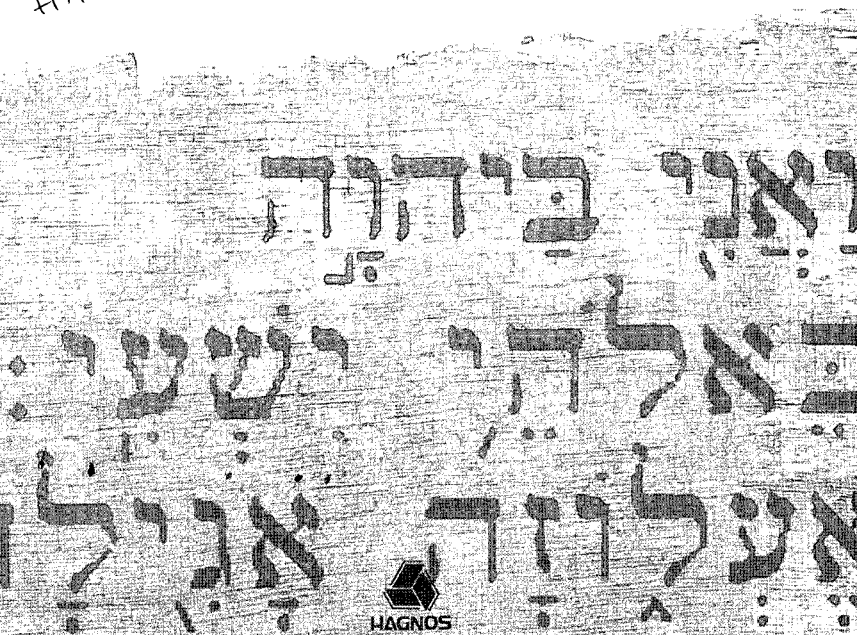 וַאֲנִי בַּיהוָה
בֵּאלֹהֵי יִשְׁעִי׃
אֶעְלוֹזָה אָגִילָה
HAGNOS